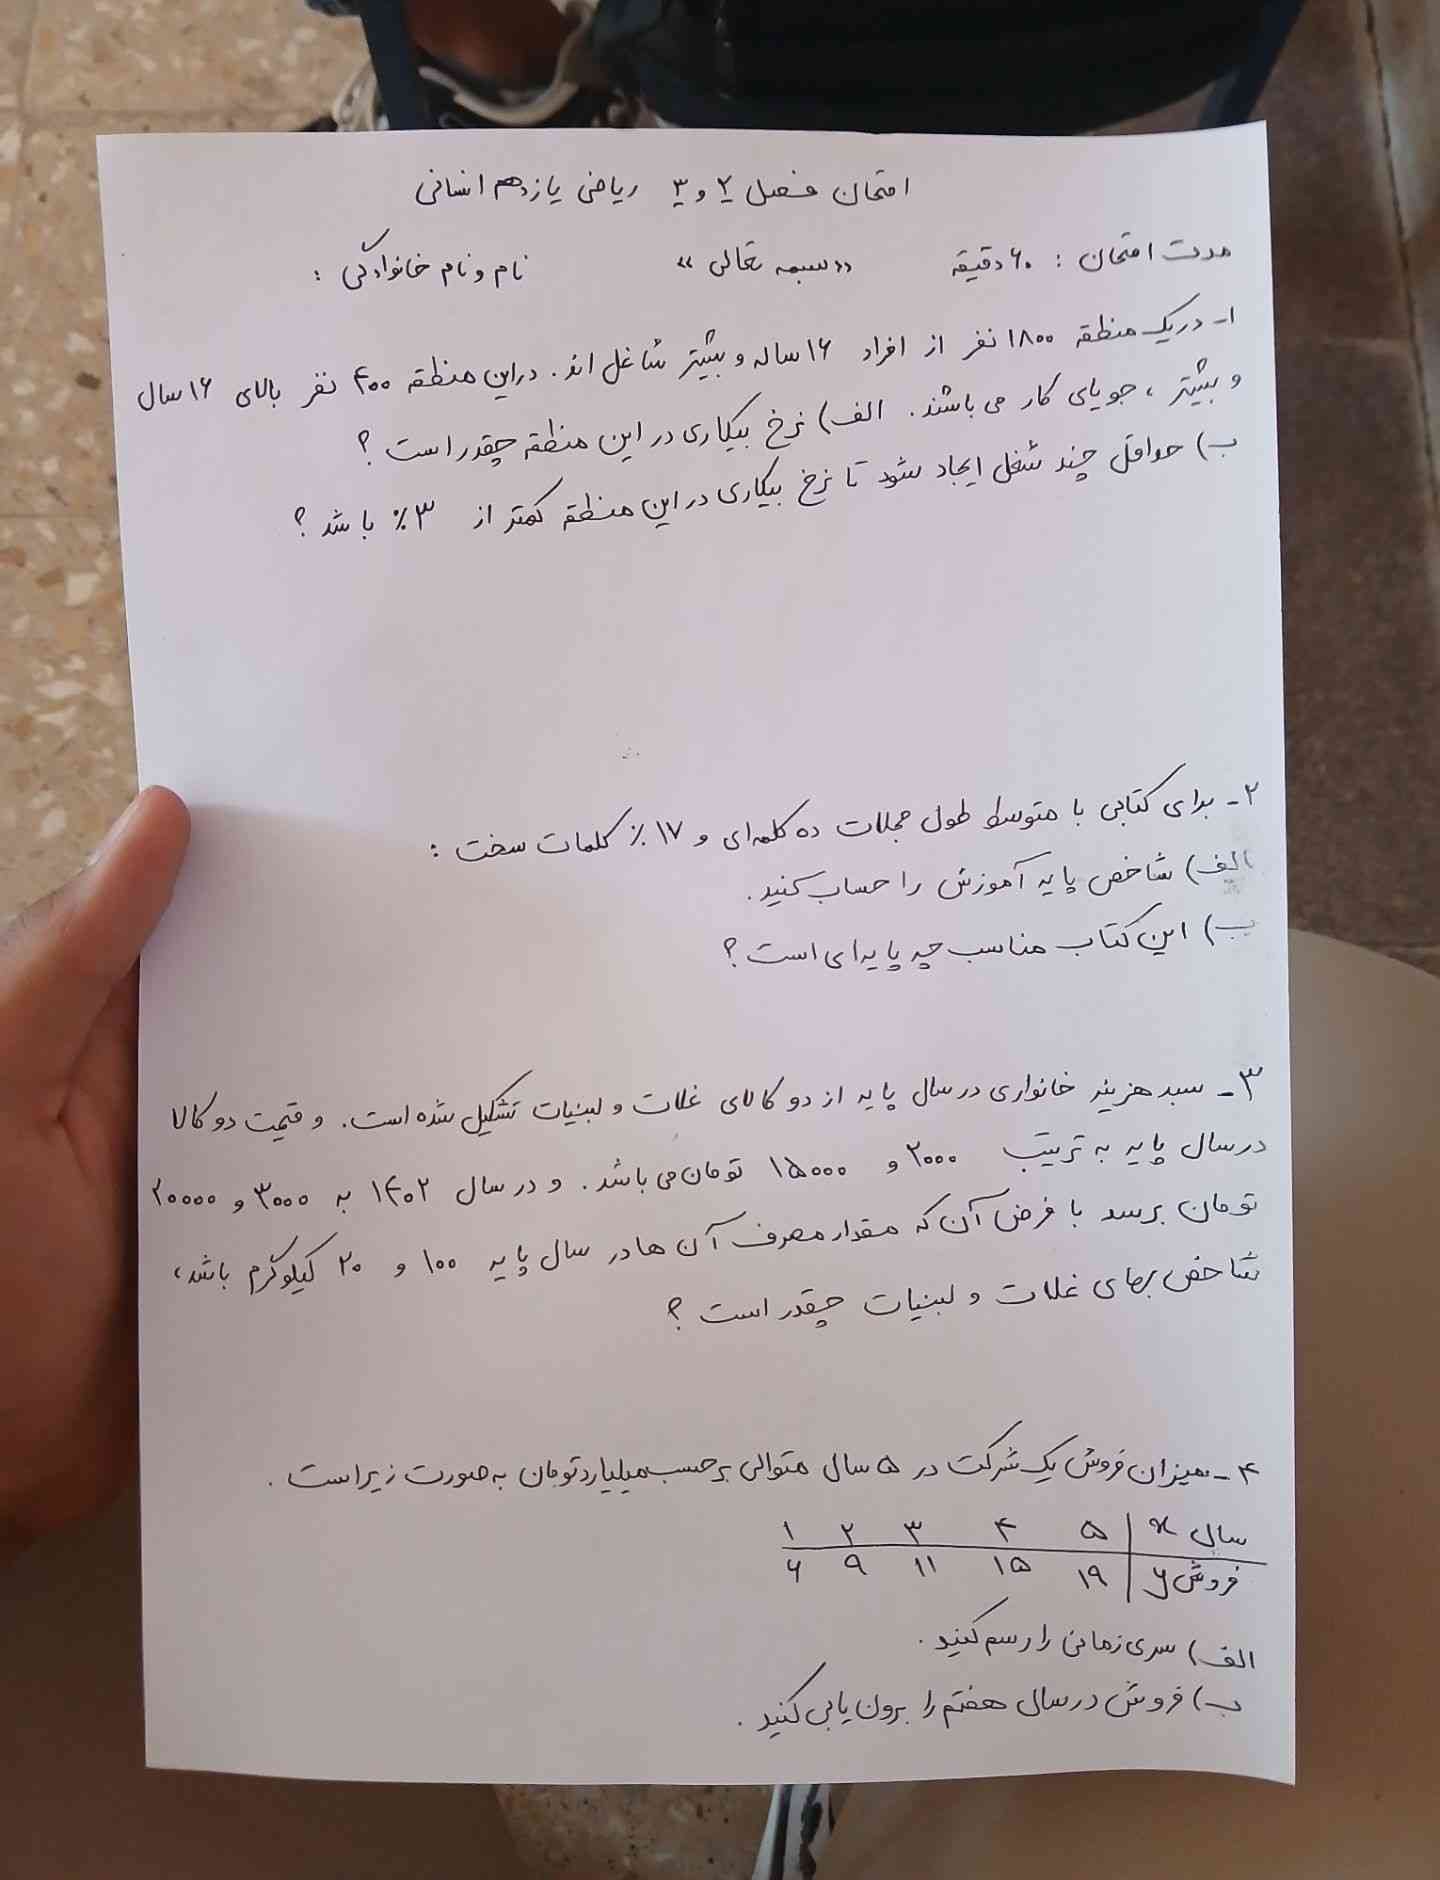 امتحان فصل ۲ و ۳ ریاضی یازدهم انسانی
مدت امتحان : ۶۰ دقیقه «بسمه تعالی» نام و نام خانوادگی :
۱- در یک منطقه ۱۸۰۰ نفر از افراد ۱۶ ساله و بیشتر شاغل اند. در این منطقه ۴۰۰ نفر بالای ۱۶ سال
و بیشتر ، جویای کار می باشند. الف) نرخ بیکاری در این منطقه چقدر است ؟
ب) حداقل چند شغل ایجاد شود تا نرخ بیکاری در این منطقه کمتر از ۳٪ باشد ؟
۲- برای کتابی با متوسط طول جملات ده کلمه‌ای و ۱۷٪ کلمات سخت :
الف) شاخص پایه آموزش را حساب کنید.
ب) این کتاب مناسب چه پایه‌ای است ؟
۳- سبد هزینه خانواری در سال پایه از دو کالای غلات و لبنیات تشکیل شده است. و قیمت دو کالا
در سال پایه به ترتیب ۲۰۰۰ و ۱۵۰۰۰ تومان می باشد. و در سال ۱۴۰۲ به ۳۰۰۰ و ۲۰۰۰۰
تومان برسد با فرض آن که مقدار مصرف آن ها در سال پایه ۱۰۰ و ۲۰ کیلوگرم باشد،
شاخص بهای غلات و لبنیات چقدر است ؟
۴- میزان فروش یک شرکت در ۵ سال متوالی برحسب میلیارد تومان به صورت زیر است .
سال x | ۵ ۴ ۳ ۲ ۱
فروش y | ۱۹ ۱۵ ۱۱ ۹ ۶
الف) سری زمانی را رسم کنید .
ب) فروش در سال هفتم را برون یابی کنید .